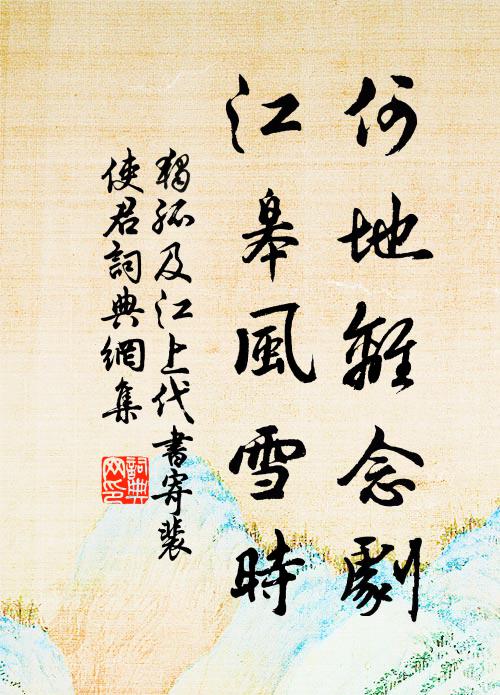 何地離念劇
江皋風雪時
獨孤及江上代書寄裴
使君詞典網集
詞典
网印